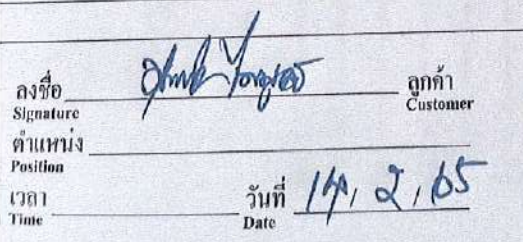 ลงชื่อ ลูกค้า
Signature Customer
ตำแหน่ง
Position
เวลา วันที่ 14, 2, 65
Time Date